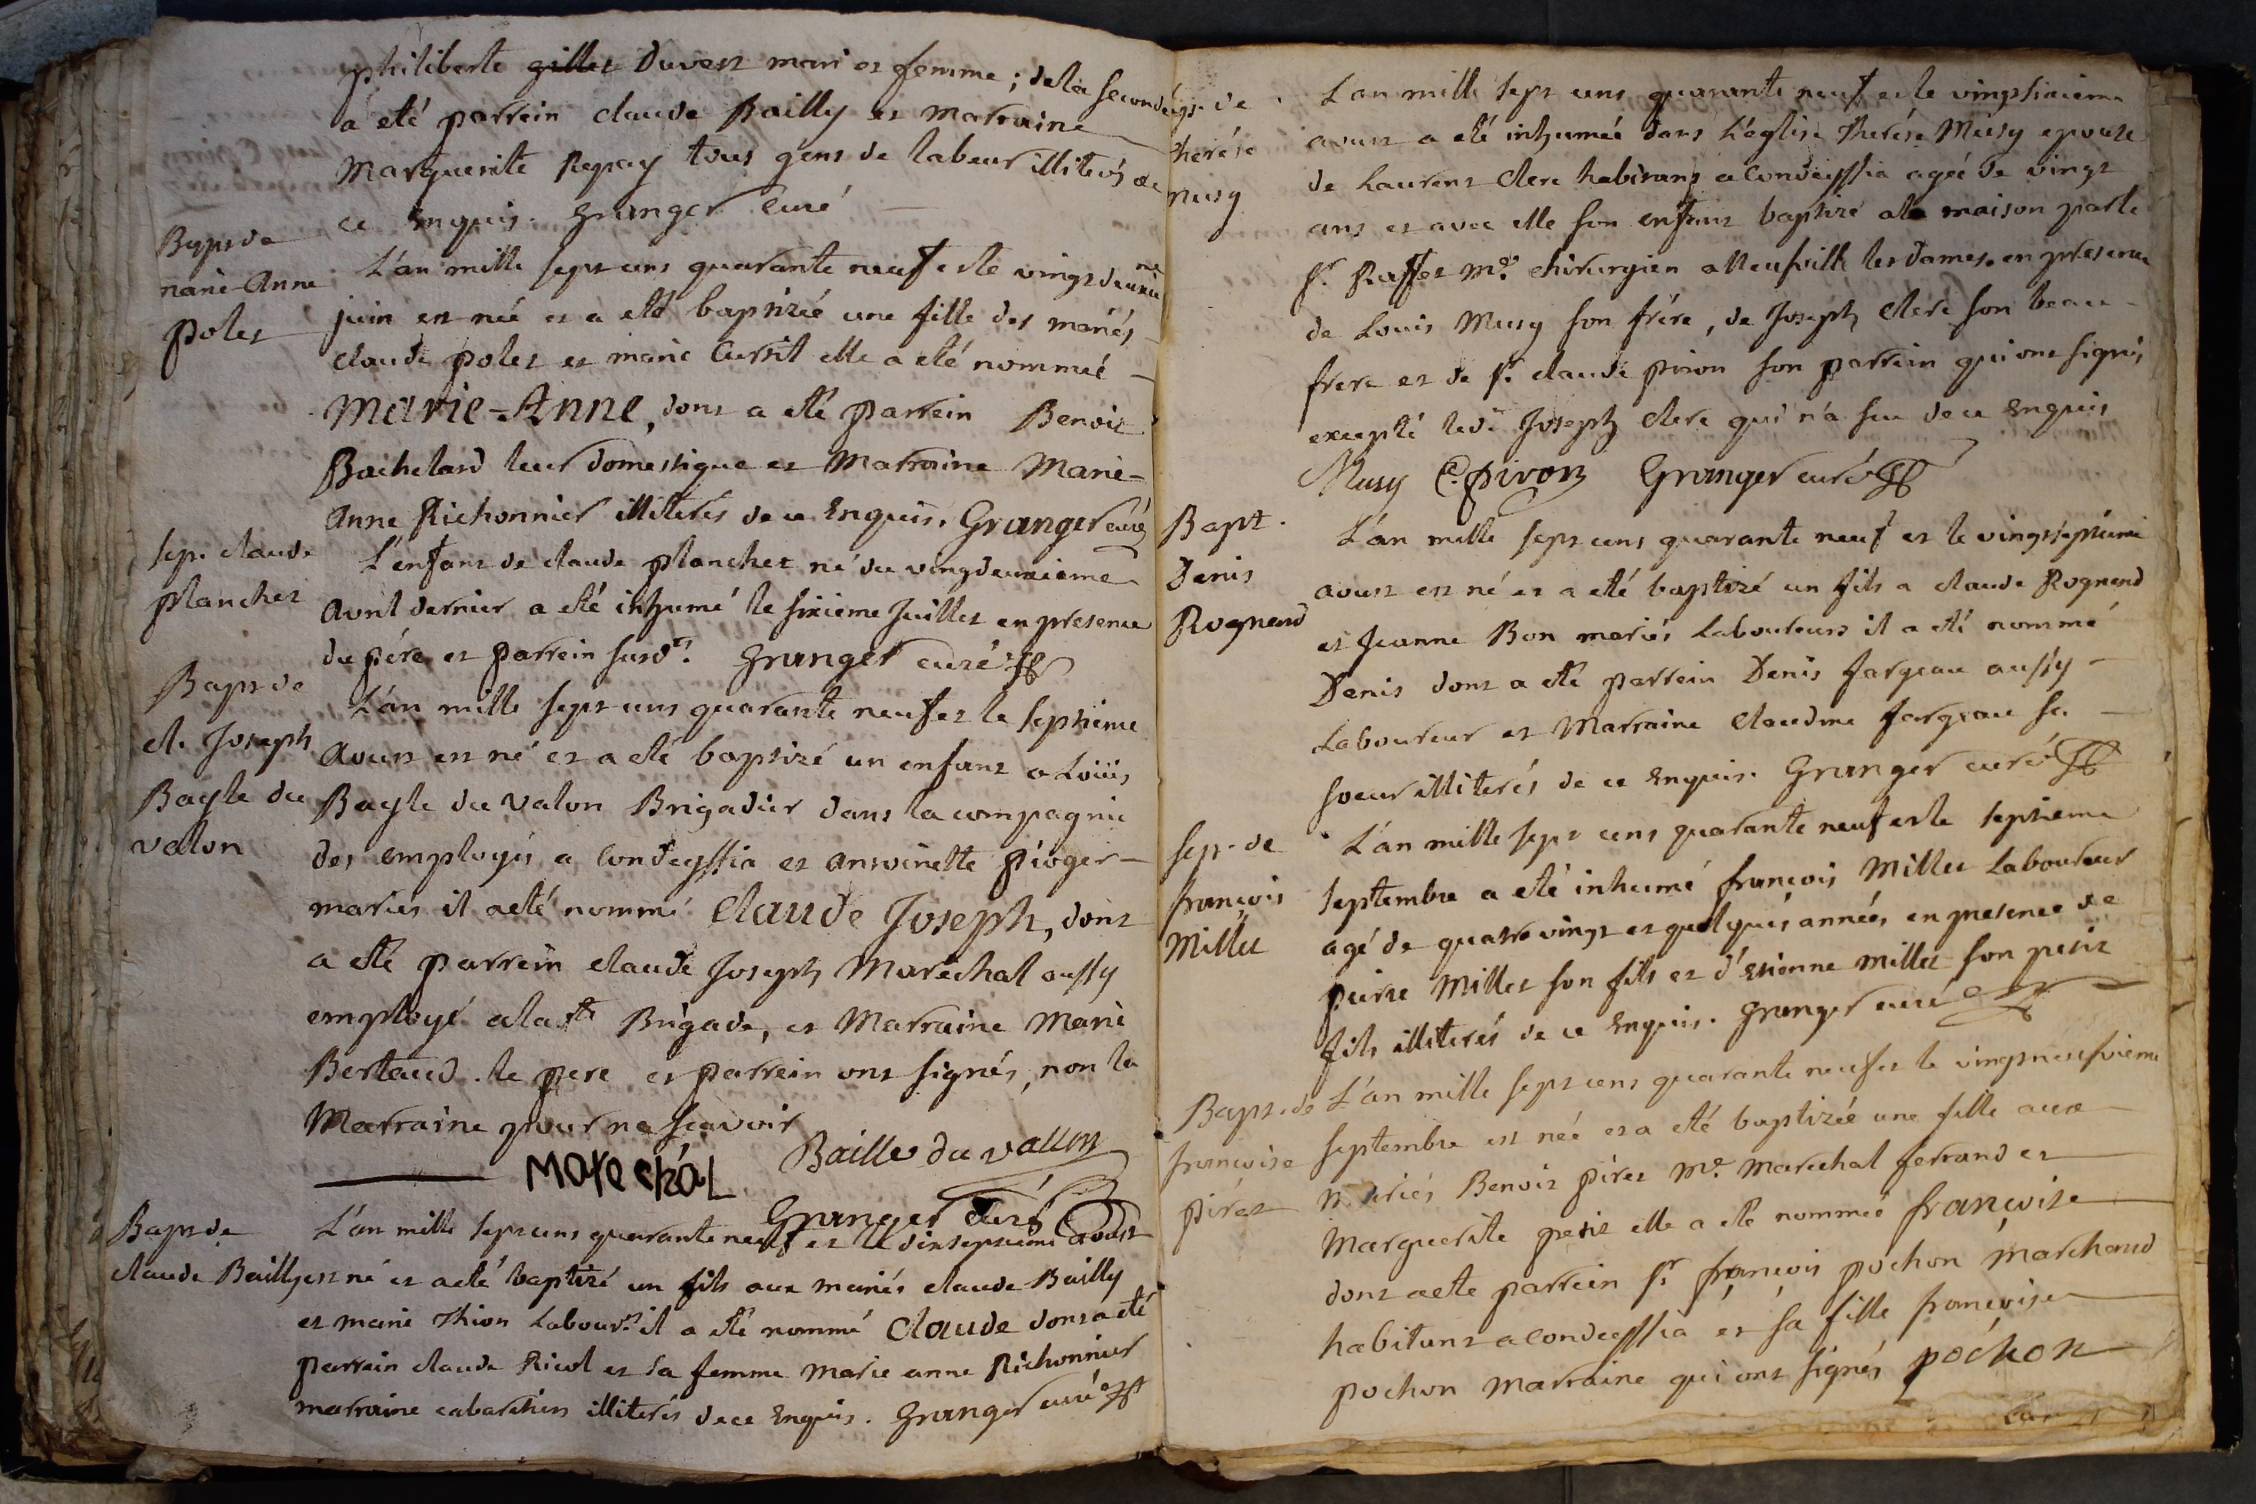 philiberte gillet Duvert mari et femme ; dela seconde
a eté parrein claude Bailly et marraine
marguerite Repay tous gens de labeur illiterés de
ce Enquis. Granger Curé
Bapt de
marie-Anne
polet
L'an mille sept cens quarante neuf et le vingt deuxieme
juin est née et a eté baptizée une fille des mariés
claude polet et marie Cursit elle a eté nommée
Marie-Anne, dont a eté parrein Benoit
Bachelard leur domestique et marraine Marie-
Anne Richonnier illiterés de ce Enquis. Granger curé
sep. claude
planchet
L'enfant de claude planchet né du vingdeuxieme
avril dernier a eté inhumé le sixieme Juillet en presence
du pére et parrein susdts. Granger curé
Bapt de
cl. Joseph
Bayle du
valon
L'an mille sept cens quarante neuf et le septieme
avoust est né et a eté baptizé un enfant a Loüis
Bayle du valon Brigadier dans la compagnie
des employés a Condeyssia et antoinette pioger
mariés il a eté nommé Claude Joseph, dont
a eté parrein claude Joseph Marechal aussy
employé a lad.te Brigade, et Marraine Marie
Bertaud. le pere et parrein ont signés, non la
Marraine pour ne sçavoir
Marechal Baille du vallon
Granger Curé
Bapt de
claude Bailly
L'an mille sept cens quarante neuf et le dixseptieme avoust
est né et a eté baptizé un fils aux mariés claude Bailly
et marie Thion Labour.rs il a eté nommé Claude dont a eté
parrein claude Ricol et sa femme marie anne Richonnier
marraine cabartiers illiterés de ce Enquis. Granger curé
sep. de
therése
musy
L'an mille sept cens quarante neuf et le vingtsixieme
avoust a eté inhumée dans L'église Therése Musy epouse
de Laurent Clere habitant a Condeyssia agée de vingt
ans et avec elle son enfant baptizé a la maison par le
Sr. Ruffet Me. chirurgien a Neufville les dames. en presence
de Louis Musy son frére, de Joseph Clere son beau-
frere et de Sr. claude piron son parrein qui ont signés
excepté led. Joseph Clere qui n'a seu de ce Enquis
Musy C. piron Granger curé
Bapt.
Denis
Rognard
L'an mille sept cens quarante neuf et le vingtseptieme
avoust est né et a eté baptizé un fils a claude Rognard
et Jeanne Bon mariés Laboureurs il a eté nommé
Denis dont a eté parrein Denis fargeau aussy
Laboureur et Marraine Claudine fargeau sa
soeur illiterés de ce Enquis. Granger curé
sep. de
françois
Millet
L'an mille sept cens quarante neuf et le septieme
septembre a eté inhumé françois Millet Laboureur
agé de quatrevingt et quelques années en presence de
pierre Millet son fils et d'Etienne millet son petit
fils illiterés de ce Enquis. Granger curé
Bapt. de
françoise
piret
L'an mille sept cens quarante neuf et le vingtneufvieme
septembre est née et a eté baptizée une fille aux
mariés Benoit piret Me. marechal ferrand et
Marguerite petit elle a eté nommée françoise
dont a eté parrein Sr. françois pochon marchand
habitant a Condeyssia et sa fille françoise
pochon marraine qui ont signés pochon